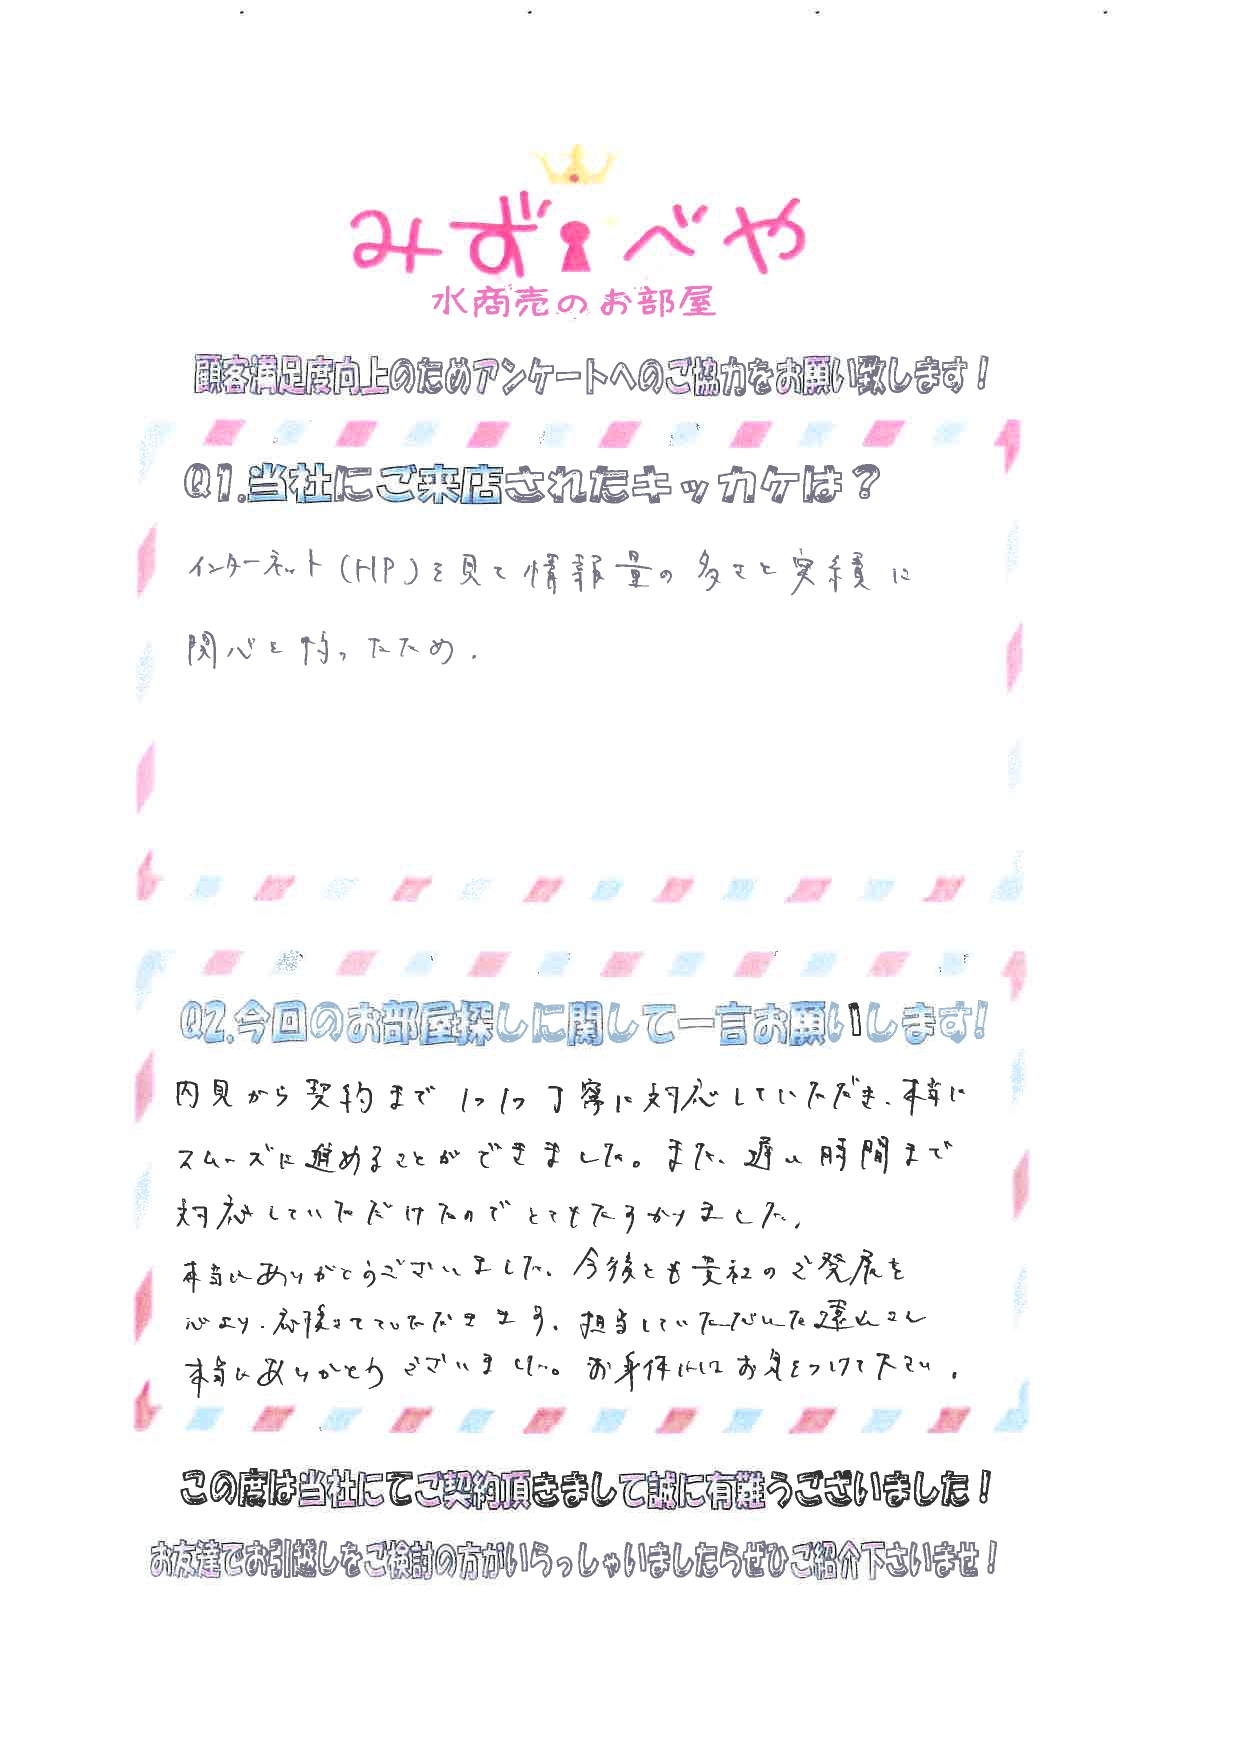 みずべや
水商売のお部屋
顧客満足度向上のためアンケートへのご協力をお願い致します！
Q1.当社にご来店されたキッカケは？
インターネット(HP)を見て情報量の多さと実績に
関心を持ったため.
Q2.今回のお部屋探しに関して一言お願いします!
内見から契約まで1つ1つ丁寧に対応していただき、本当に
スムーズに進めることができました。また、遅い時間まで
対応していただけたのでとてもたすかりました。
本当にありがとうございました。今後とも貴社のご発展を
心より、応援させていただきます。担当していただいた遠山さん
本当にありがとうございました。お身体にはお気をつけて下さい。
この度は当社にてご契約頂きまして誠に有難うございました！
お友達でお引越しをご検討の方がいらっしゃいましたらぜひご紹介下さいませ！